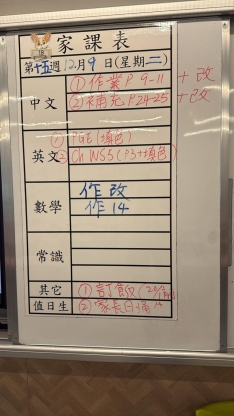 家課表
第十五週12月9日(星期二)
中文
①作業P 9-11 + 改
②補充P24-25 + 改
英文
① PGE(填色)
② Ch1NS5(P3+填色)
數學
作改
作14
常識
其它
①訂飯
值日生
②家長日通